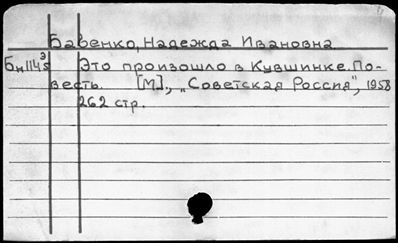 Бавенко, Надежда Ивановна
Бн1145э Это произошло в Кувшинке. По-
весть. [М.], „Советская Россия", 1958
262 стр.